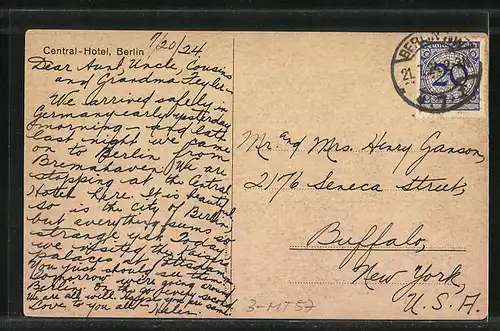 Central-Hotel, Berlin
7/20/24
Dear Aunt, Uncle, Cousins
and Grandma
We arrived safely in
Germany early yesterday
morning - and late
last night we came
on to Berlin from
Bremahaven. We are
stopping at the Central
Hotel here. It is beautiful
so is the city of Berlin
but everything seems so
strange yet. Today
we visited the Kaiser
palaces at Potsdam.
You just should see
Tomorrow we're going around
Berlin. On the
We are all well. Hope you are same.
Love to you all - Helen.
BERLIN
21.
20
Mr. and Mrs. Henry Ganson,
2176 Seneca Street,
Buffalo,
New York,
U.S.A.
3-MT57